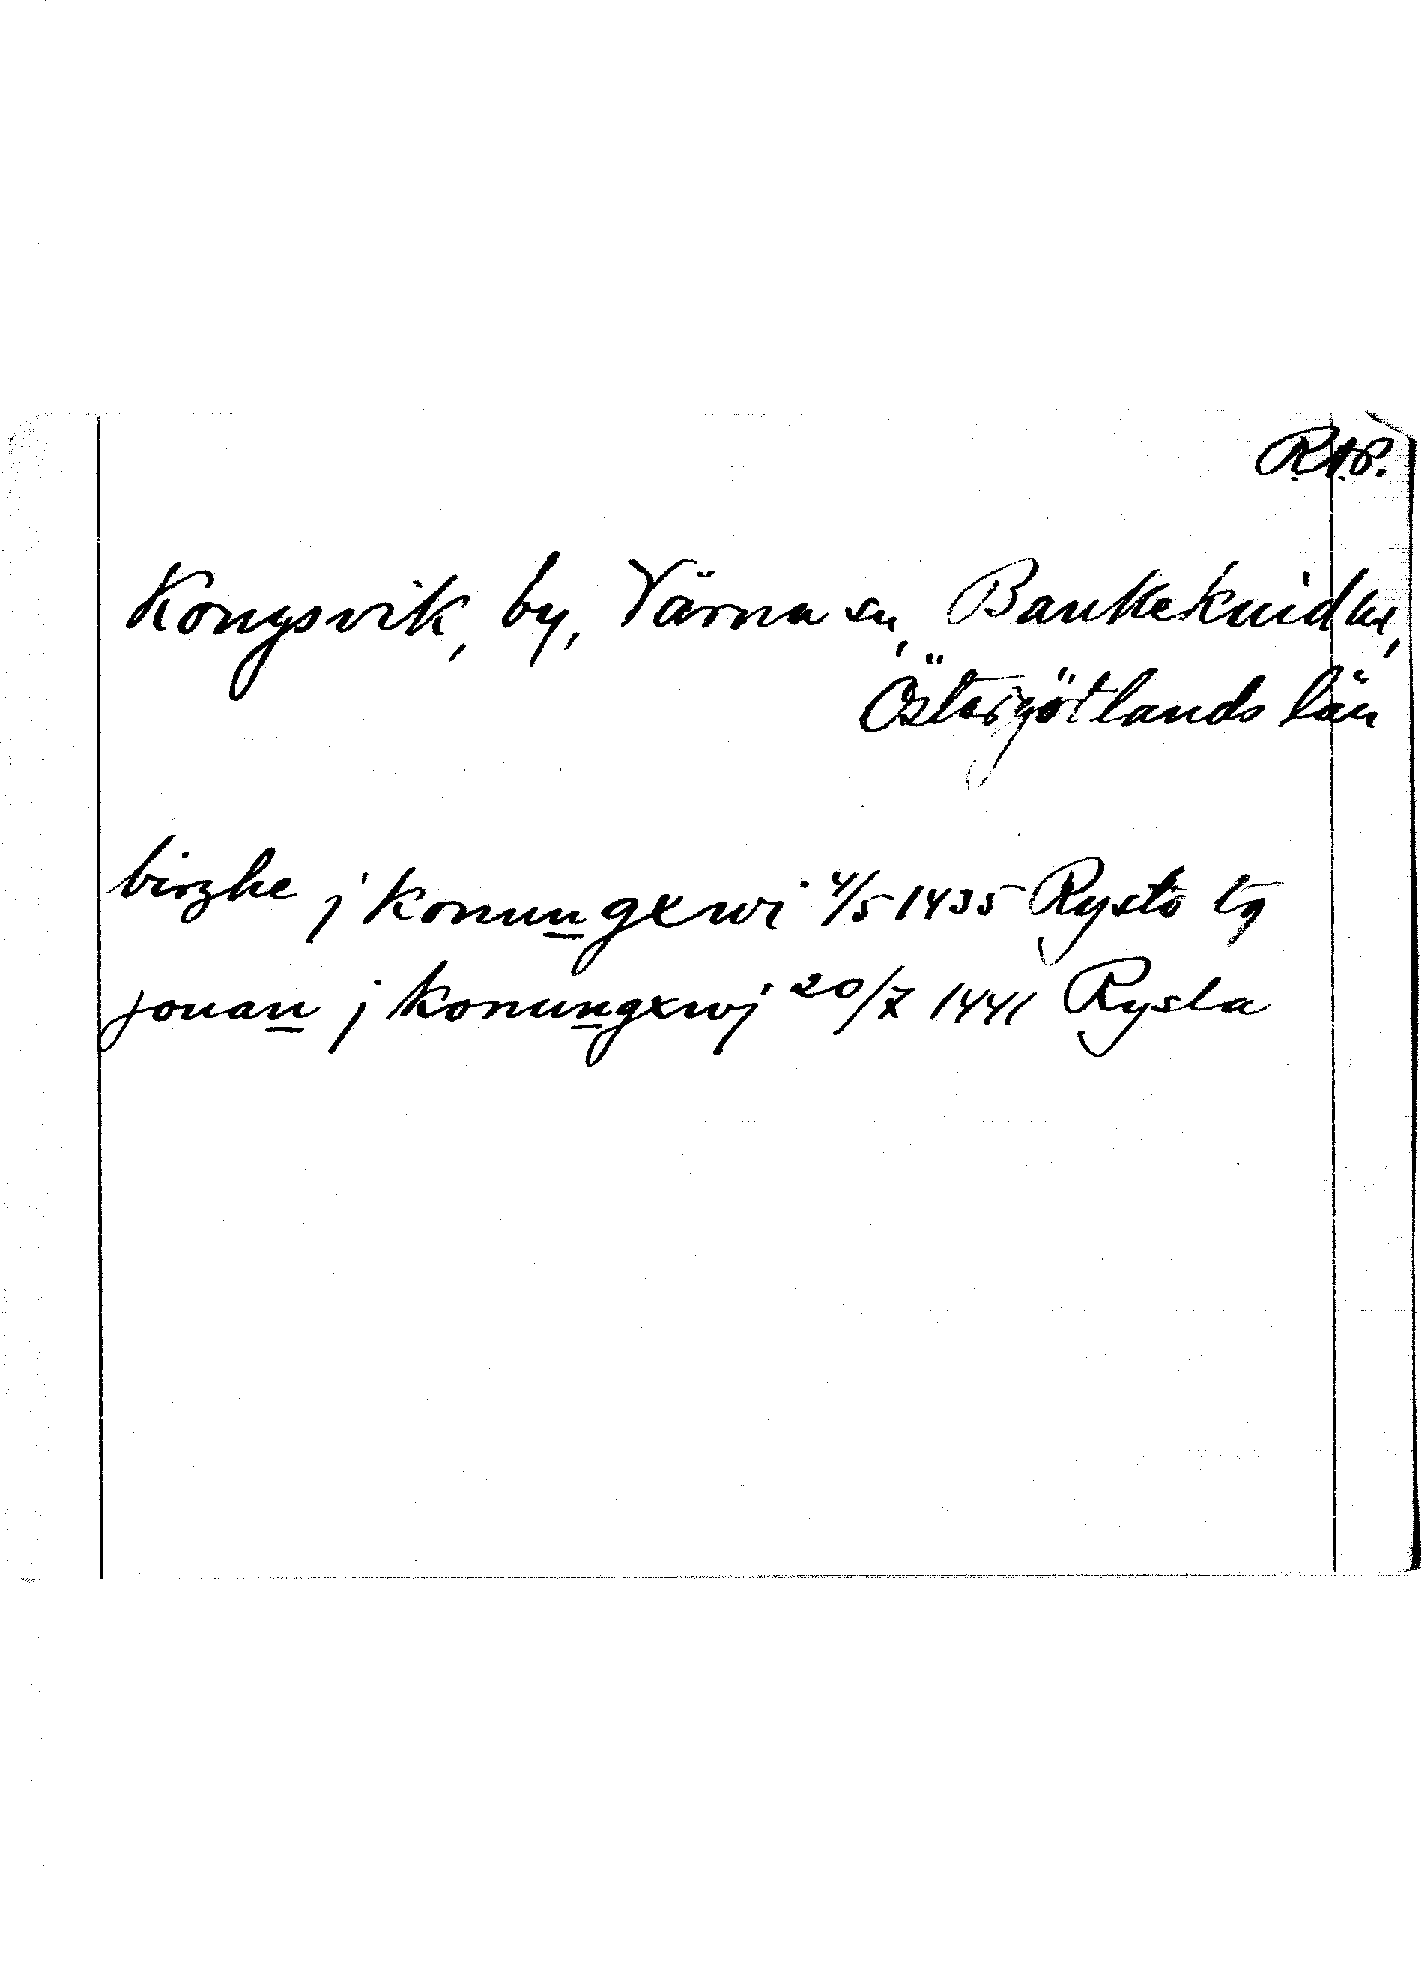 R.A.P.
Kongsvik, by, Värna sn, Bankekinds hd,
Östergötlands län
birghe j konungxwi 4/5 1435 Rystö tg
jonan j konungxwj 20/7 1441 Rysta